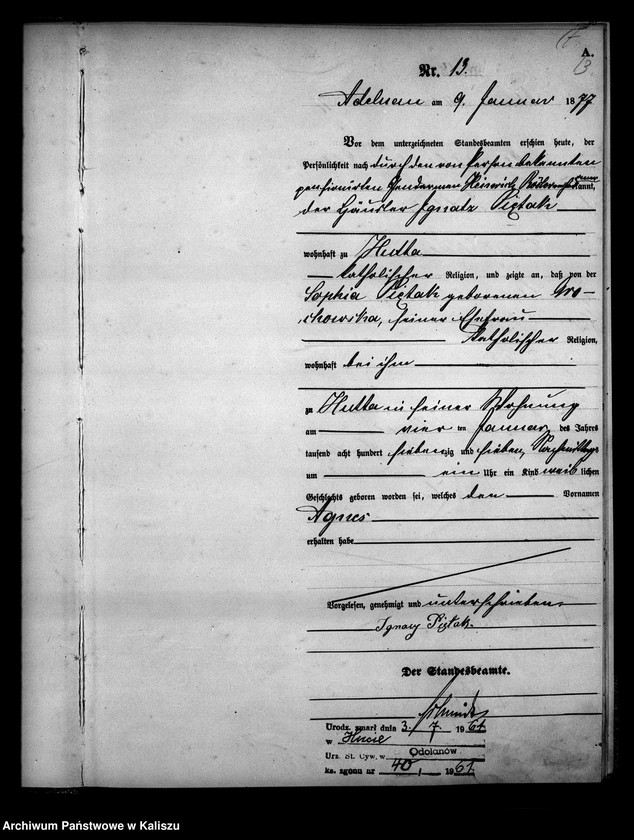 A.
13
Nr. 13.
Adelnau am 9. Januar 1877
Vor dem unterzeichneten Standesbeamten erschien heute, der
Persönlichkeit nach durch den von Person bekannten
pensionirten Gendarmen Heinrich kannt,
der Häusler Ignatz Piętak
wohnhaft zu Hutta
katholischer Religion, und zeigte an, daß von der
Sophia Piętak geborenen Gro-
chowska, seiner Ehefrau
katholischer Religion,
wohnhaft bei ihm
zu Hutta in seiner Wohnung
am vier ten Januar des Jahres
tausend acht hundert siebenzig und sieben, Nachmittags
um ein Uhr ein Kind weiblichen
Geschlechts geboren worden sei, welches den Vornamen
Agnes
erhalten habe
Vorgelesen, genehmigt und unterschrieben
Ignacy Piętak.
Der Standesbeamte.
Urodz. zmarł dnia 3. 7. 1961
w Hucie
Urz. St. Cyw. w Odolanów
ks. zgonu nr 40, 1961.
Archiwum Państwowe w Kaliszu